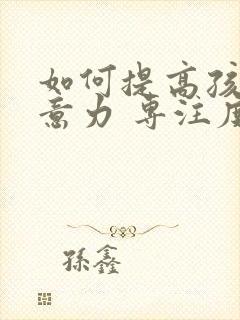 如何提高孩
意力 专注度
孫鑫